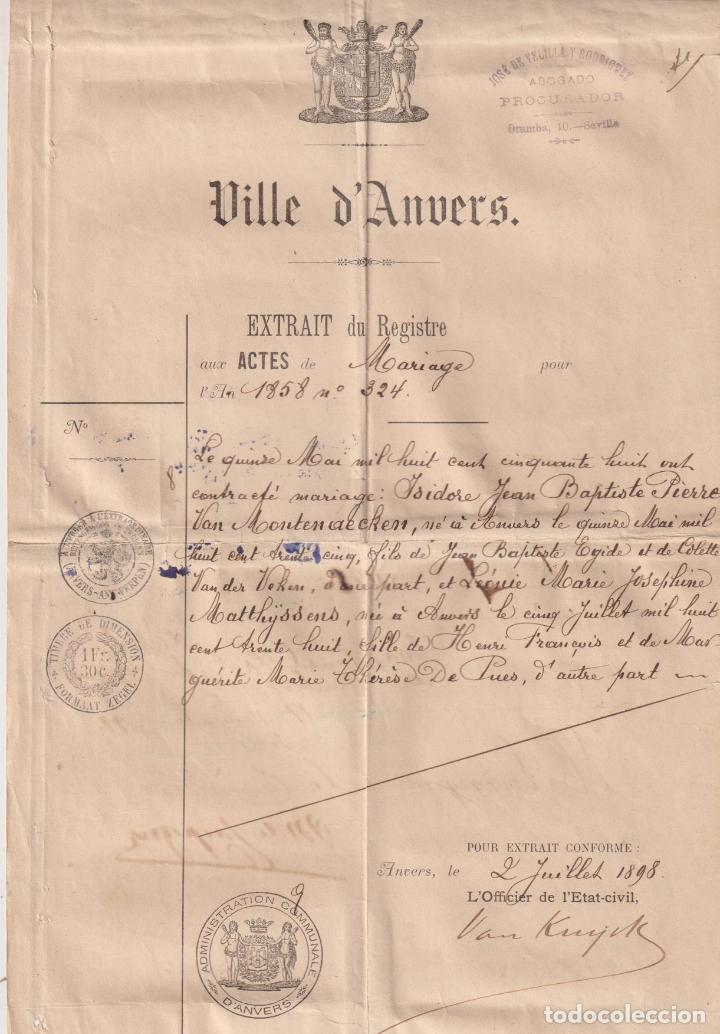 JOSÉ DE VELILLA Y RODRIGUEZ
ABOGADO
PROCURADOR
Otumba, 10.—Sevilla
Ville d'Anvers.
EXTRAIT du Registre
aux ACTES de Mariage pour
l'An 1858 no. 324.
No
8
Le quinze Mai mil huit cent cinquante huit ont
contracté mariage: Isidore Jean Baptiste Pierre
Van Montenaecken, né à Anvers le quinze Mai mil
huit cent trente cinq, fils de Jean Baptiste Egide et de Colette
Van der Veken, d'une part, et Léonie Marie Josephine
Matthÿssens, née à Anvers le cinq Juillet mil huit
cent trente huit, fille de Henri François et de Mar
guérite Marie Thérèse De Pues, d'autre part
(ANVERS-ANTWERPEN)
TIMBRE DE DIMENSION
1 Fr.
30c.
FORMAAT ZEGEL
POUR EXTRAIT CONFORME :
Anvers, le 2 Juillet 1898.
L'Officier de l'Etat-civil,
Van Kuyck
9
ADMINISTRATION COMMUNALE
D'ANVERS
todocoleccion
todocoleccion.net